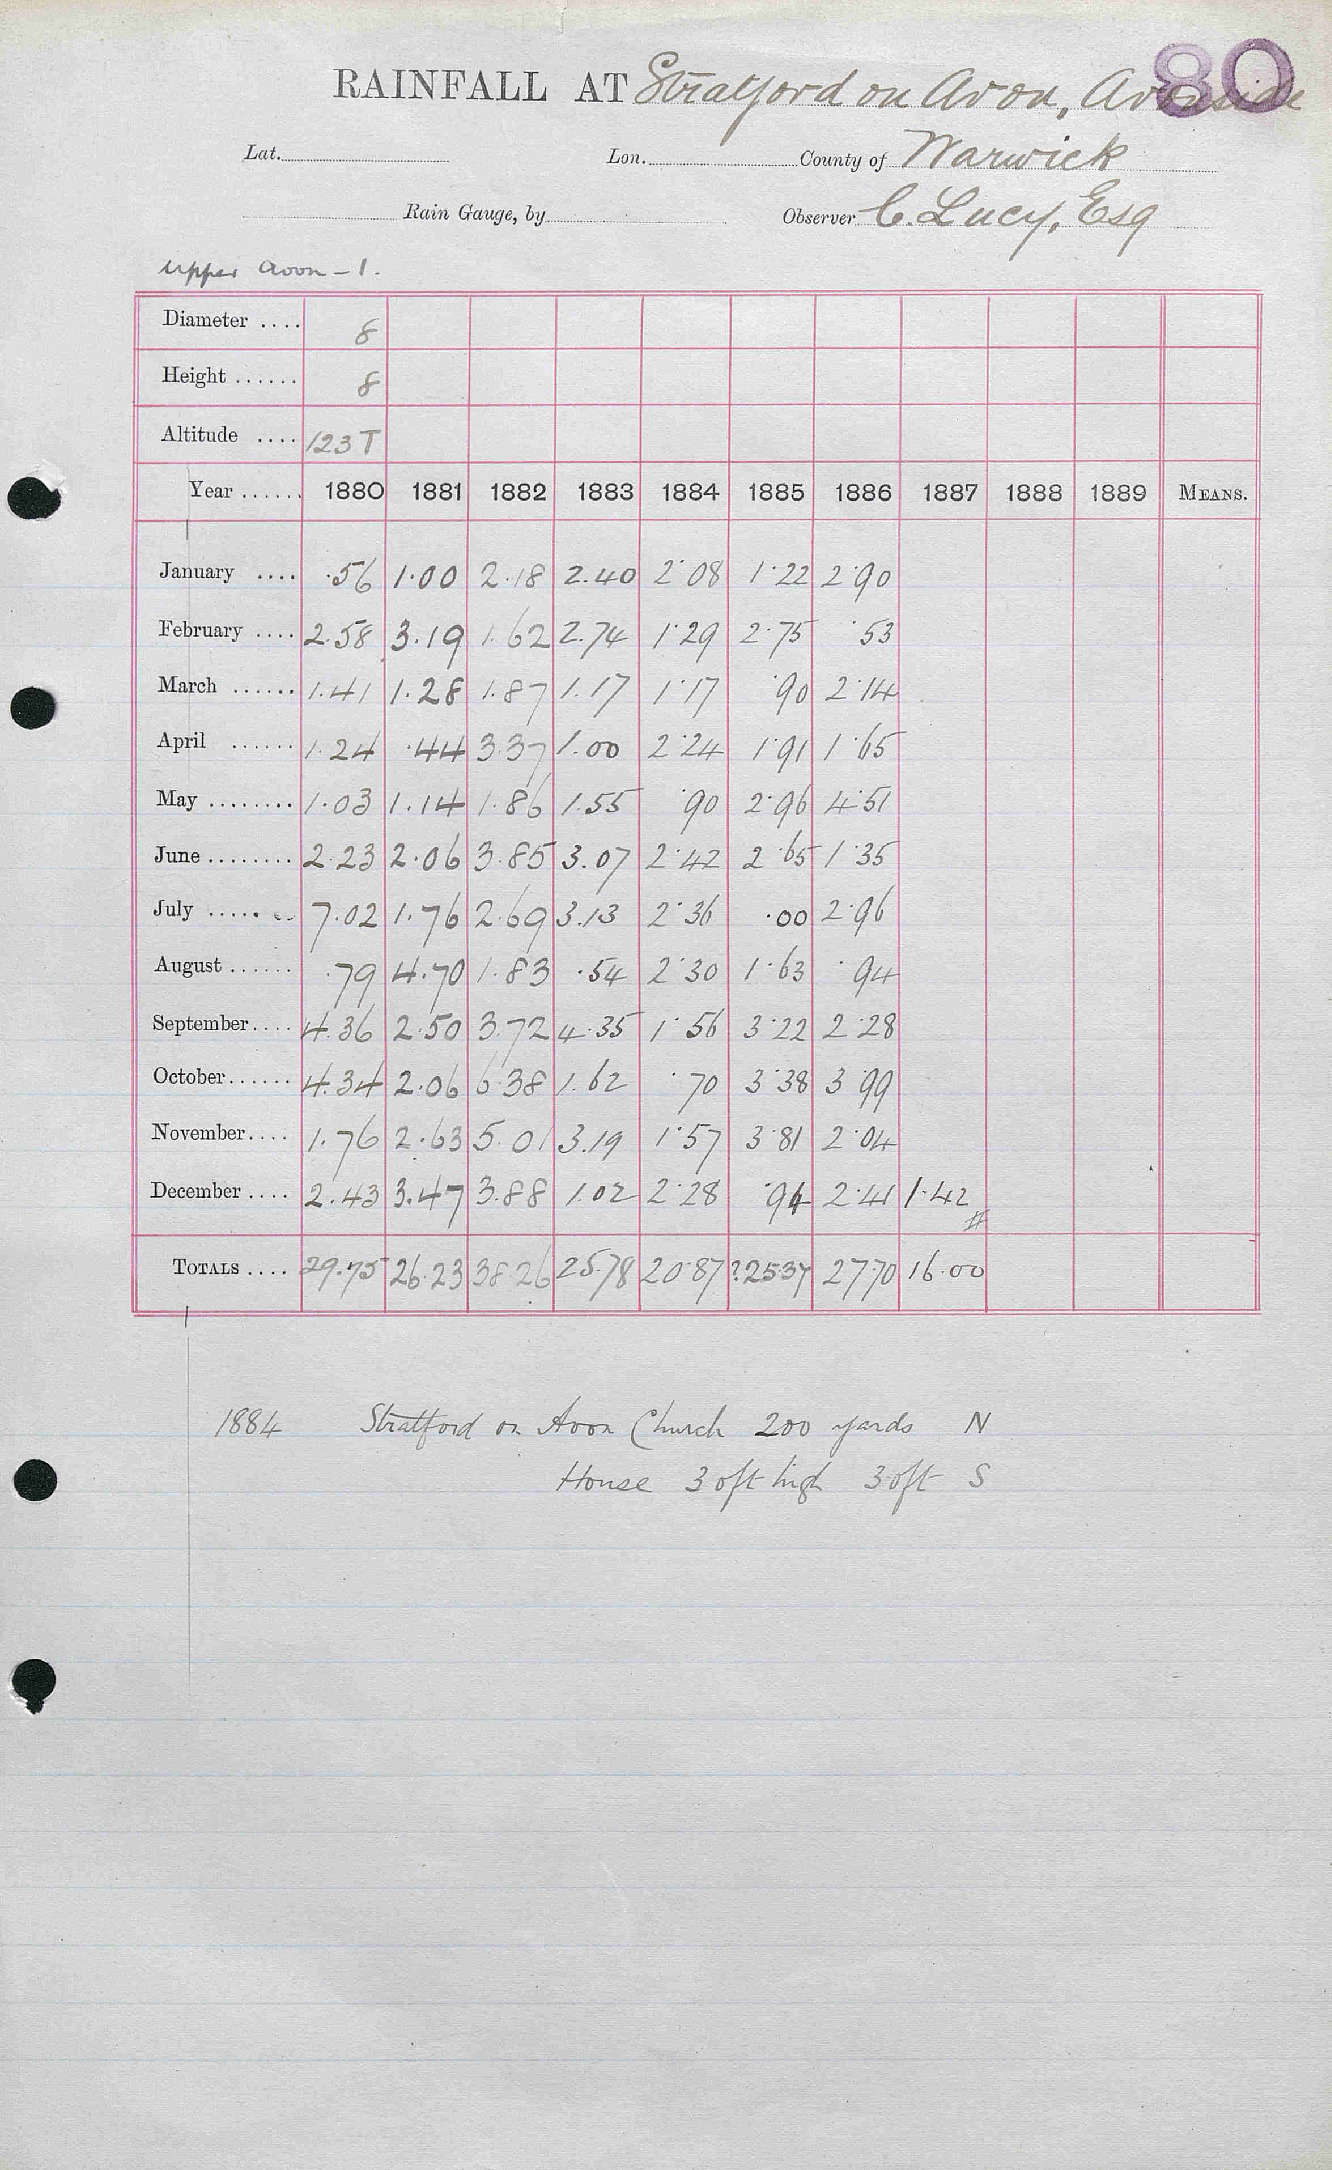 80
RAINFALL AT Stratford on Avon, Avonside
Lat. Lon. County of Warwick
Rain Gauge, by Observer C. Lucy, Esq
Upper Avon - 1.
Diameter .... 8
Height ...... 8
Altitude .... 123 T
Year ...... 1880 1881 1882 1883 1884 1885 1886 1887 1888 1889 MEANS.
January .... .56 1.00 2.18 2.40 2.08 1.22 2.90
February .... 2.58 3.19 1.62 2.74 1.29 2.75 .53
March ...... 1.41 1.28 1.87 1.17 1.17 .90 2.14
April ...... 1.24 .44 3.37 1.00 2.24 1.91 1.65
May ........ 1.03 1.14 1.86 1.55 .90 2.96 4.51
June ........ 2.23 2.06 3.85 3.07 2.42 2.65 1.35
July ...... 7.02 1.76 2.69 3.13 2.36 .00 2.96
August ...... .79 4.70 1.83 .54 2.30 1.63 .94
September .... 4.36 2.50 3.72 4.35 1.56 3.22 2.28
October ...... 4.34 2.06 6.38 1.62 .70 3.38 3.99
November .... 1.76 2.63 5.01 3.19 1.57 3.81 2.04
December .... 2.43 3.47 3.88 1.02 2.28 .94 2.41 1.42
#
TOTALS .... 29.75 26.23 38.26 25.78 20.87 ?25.37 27.70 16.00
1884 Stratford on Avon Church 200 yards N
House 30ft high 30ft S